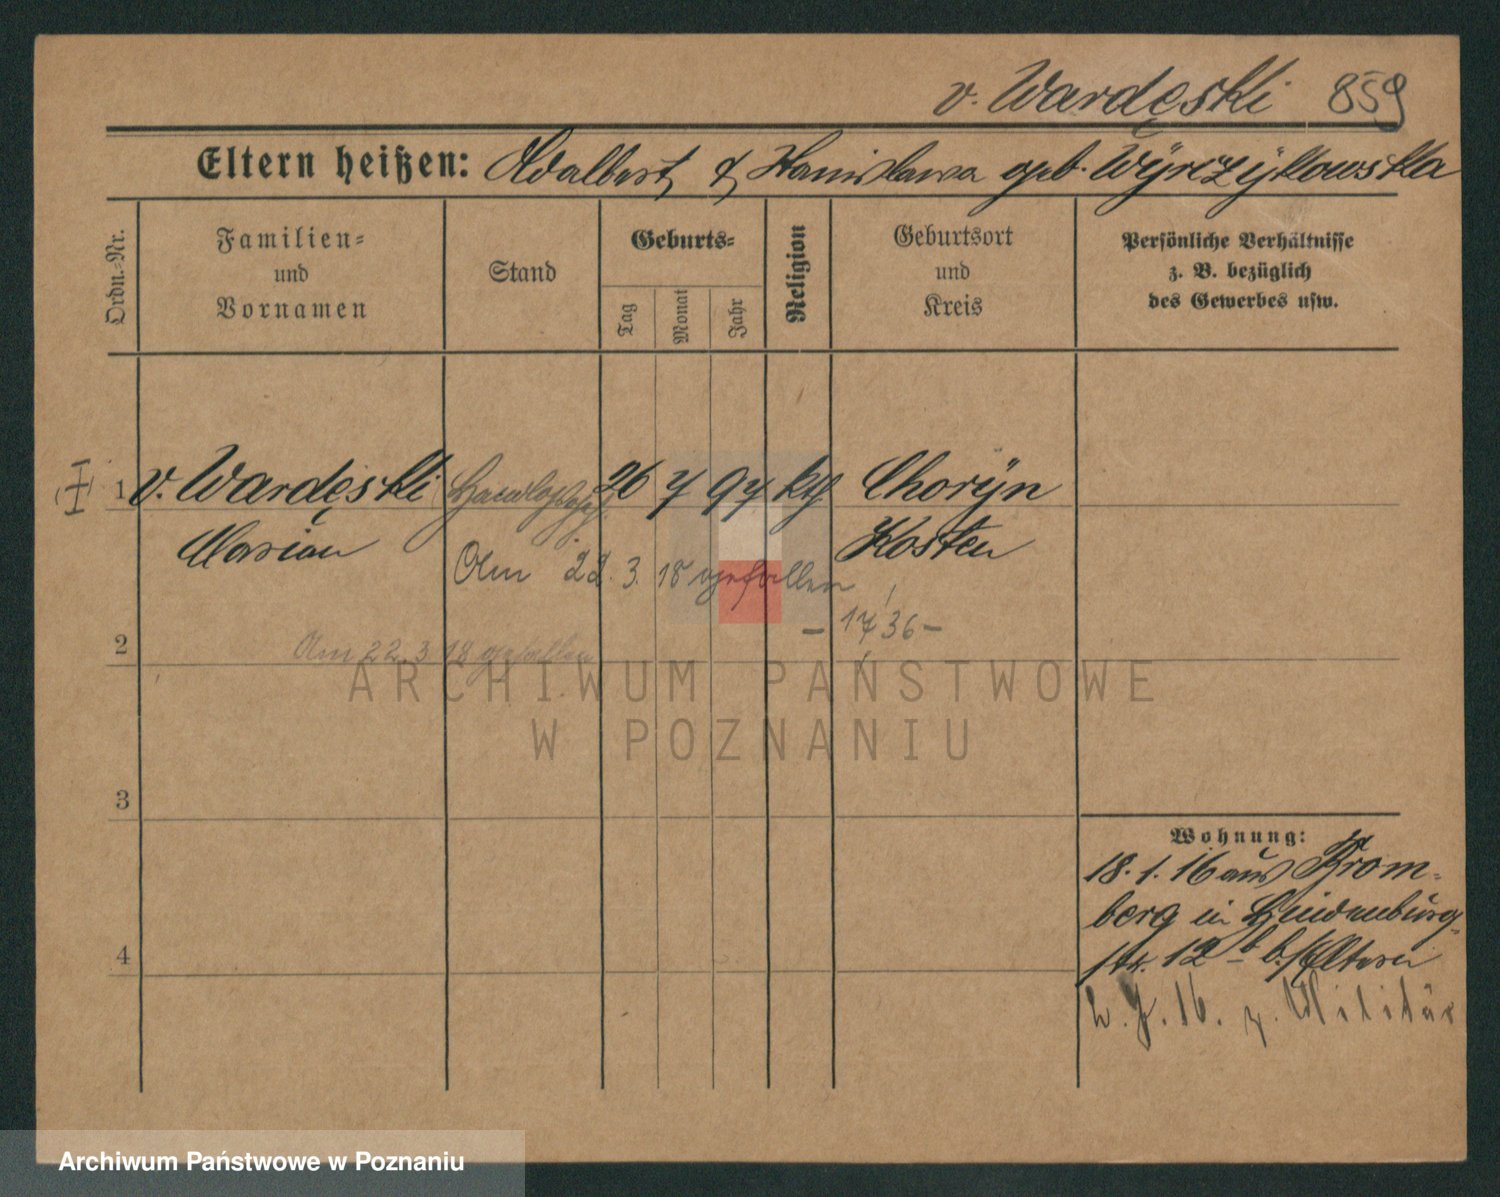 v. Wardęski 859
Eltern heißen: Adalbert & Stanislawa geb. Wyrzykowska
Ordn.-Nr.
Familien-
und
Vornamen
Stand
Geburts-
Tag
Monat
Jahr
Religion
Geburtsort
und
Kreis
Persönliche Verhältnisse
z. B. bezüglich
des Gewerbes usw.
I
1 v. Wardęski 26 7 97 kth Choryn
Marian Kosten
Am 22. 3. 18 gefallen
- 17/36 -
2 Am 22.3 18 gefallen
ARCHIWUM PAŃSTWOWE
W POZNANIU
3
Wohnung:
18. 1. 16 aus Brom-
berg in Hindenburg-
4 str. 12 b b.
16. z. Militär
Archiwum Państwowe w Poznaniu